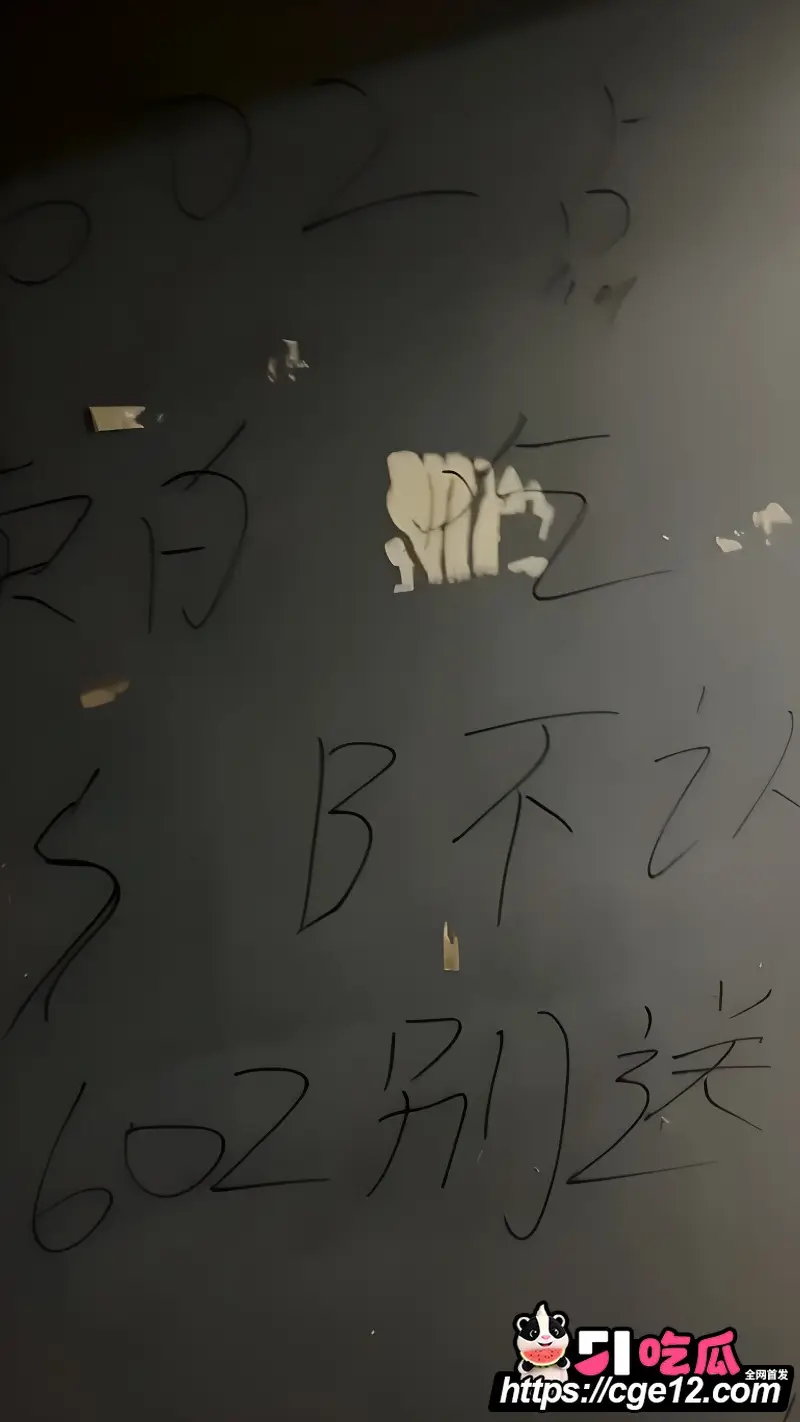 602点
的 吃
SB不认
602别送
51吃瓜
全网首发
https://cge12.com